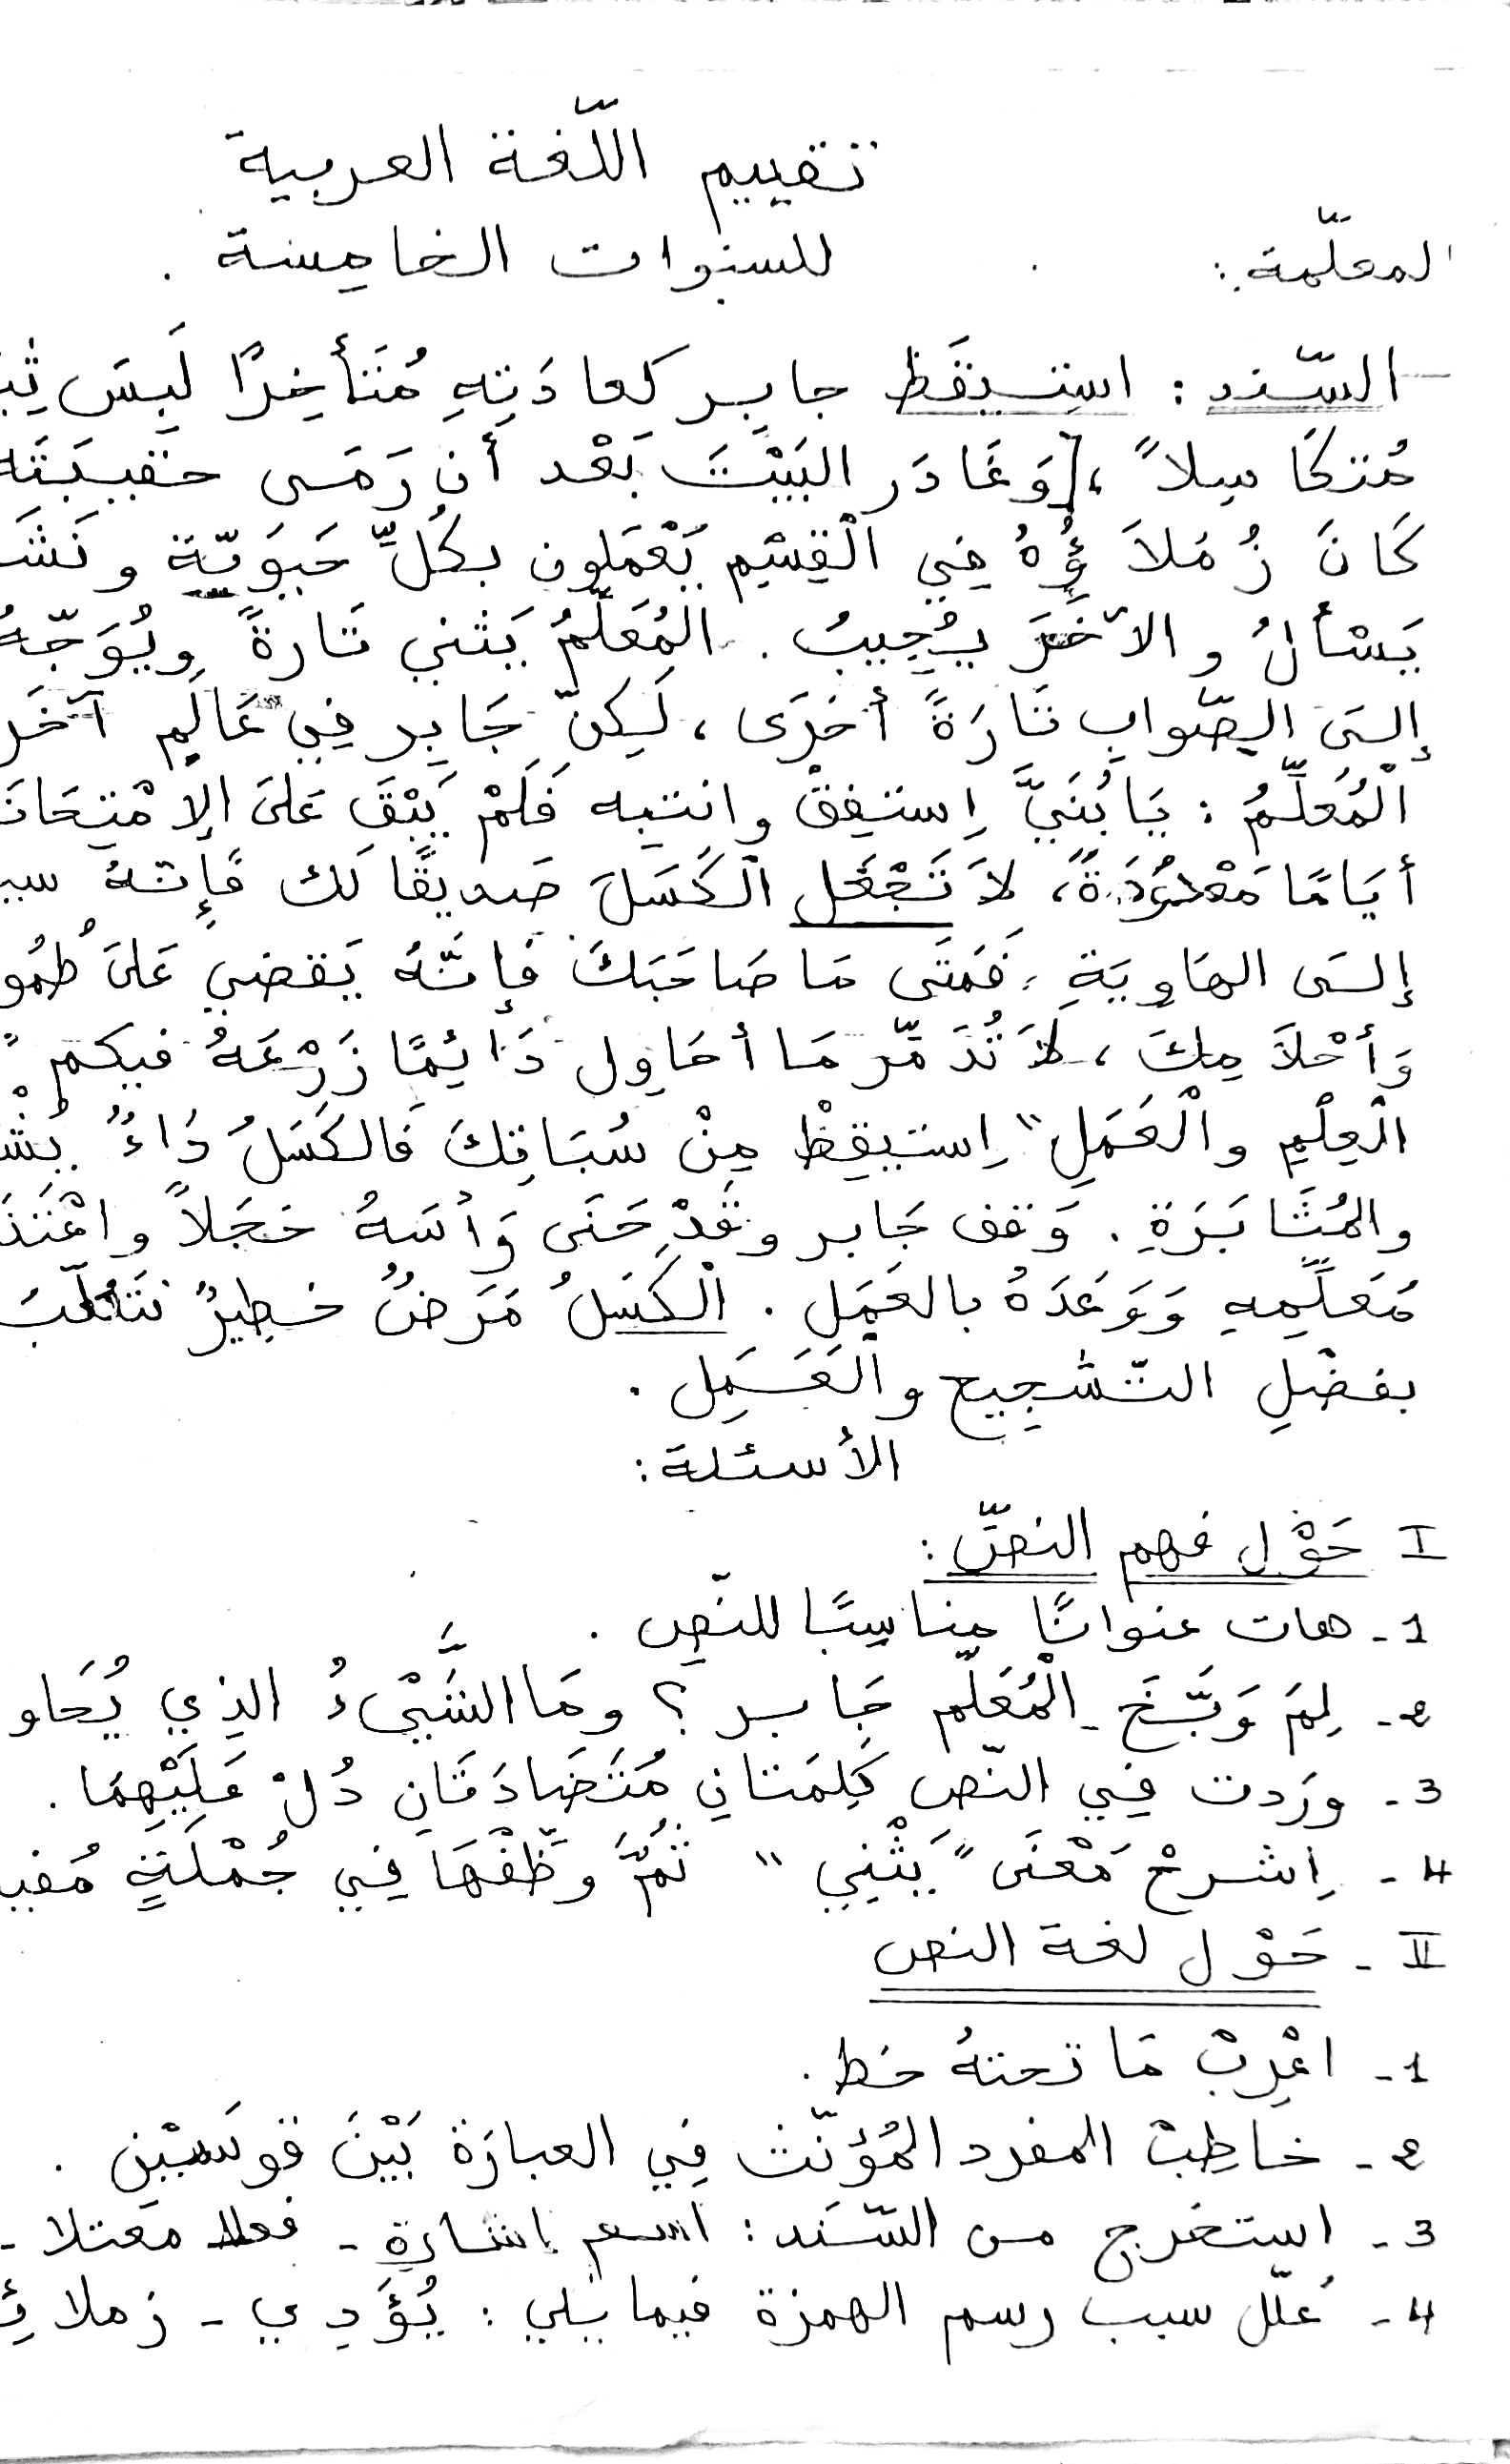 تقييم اللّغة العربية
للسنوات الخامسة .
المعلّمة :
السّند : استيقَظ جابر كعادَتِهِ مُتَأخِرًا لَبِسَ
مُتكَاسِلاً ،[وَغَادَر البَيْتَ بَعْد أن رَمَى حقيبَتَه
كَانَ زُمَلاَؤُهُ فِي الْقِسْمِ يَعْمَلون بكُلِّ حَيَوَيّة و
يَسْألُ والآخَرَ يُجِيبُ . المُعَلّمُ يَثني تَارةً ويُوَجّهُ
إلىَ الصّواب تَارَةً أخرَى ، لَكِنّ جَابِر فِي عَالَمٍ آخَر
الْمُعَلِّمُ : يَابُنَيَّ اِستفِقْ وانتبه فَلَمْ يَبْقَ عَلىَ
أيَامًا مَعْدُودَةً، لاَ تَجْعَل الْكَسَلَ صَديقًا لَك فَإنّهُ
إلىَ الهَاوِيَةِ ، فَمَتَى مَا صَاحَبَكَ فَإنَّهُ يَقضي عَلىَ
وَأحْلاَمِكَ ، لاَ تُدَمّر مَا أحَاوِل دَائِمًا زَرْعَهُ فيكم "
الْعِلْمِ والْعَمَلِ" اِستيقِظْ مِنْ سُبَاتِكَ فَالكَسَلُ دَاءٌ
والمُثَابَرَةِ . وَقف جَابر وقَدْ حَنَى رَأسَهُ خَجَلاً
مُعَلِّمِهِ وَوَعَدَهُ بالعَمَلِ . الْكَسَلُ مَرَضٌ خَطِيرٌ
بفضْلِ التّشجِيع والْعَمَلِ .
الأسئلة :
I حَوْل فهم النصّ :
1- هات عنوانًا مناسِبًا للنّصِ .
2- لِمَ وَبَّخَ الْمُعَلّم جَابر ؟ ومَا الشَّيْءُ الذِي
3- ورَدت فِي النّصِ كَلِمَتانِ مُتَضَادَتَانِ دُلّ عَلَيْهِمَا .
4- اِشرحْ مَعْنَى "يَثْنِي" ثُمَّ وَظّفْهَا فِي جُمْلَةٍ
II - حَوْل لغة النص
1- اعْرِبْ مَا تحتهُ خط .
2- خاطِبْ المفرد المُؤنّث فِي العبارَة بَيْنَ قوسَيْنِ .
3- استخرج من السّنَد : اسم إشارة - فعلا معتلا -
4- عَلّل سبب رسم الهمزة فيما يلي : يُؤَدِي -